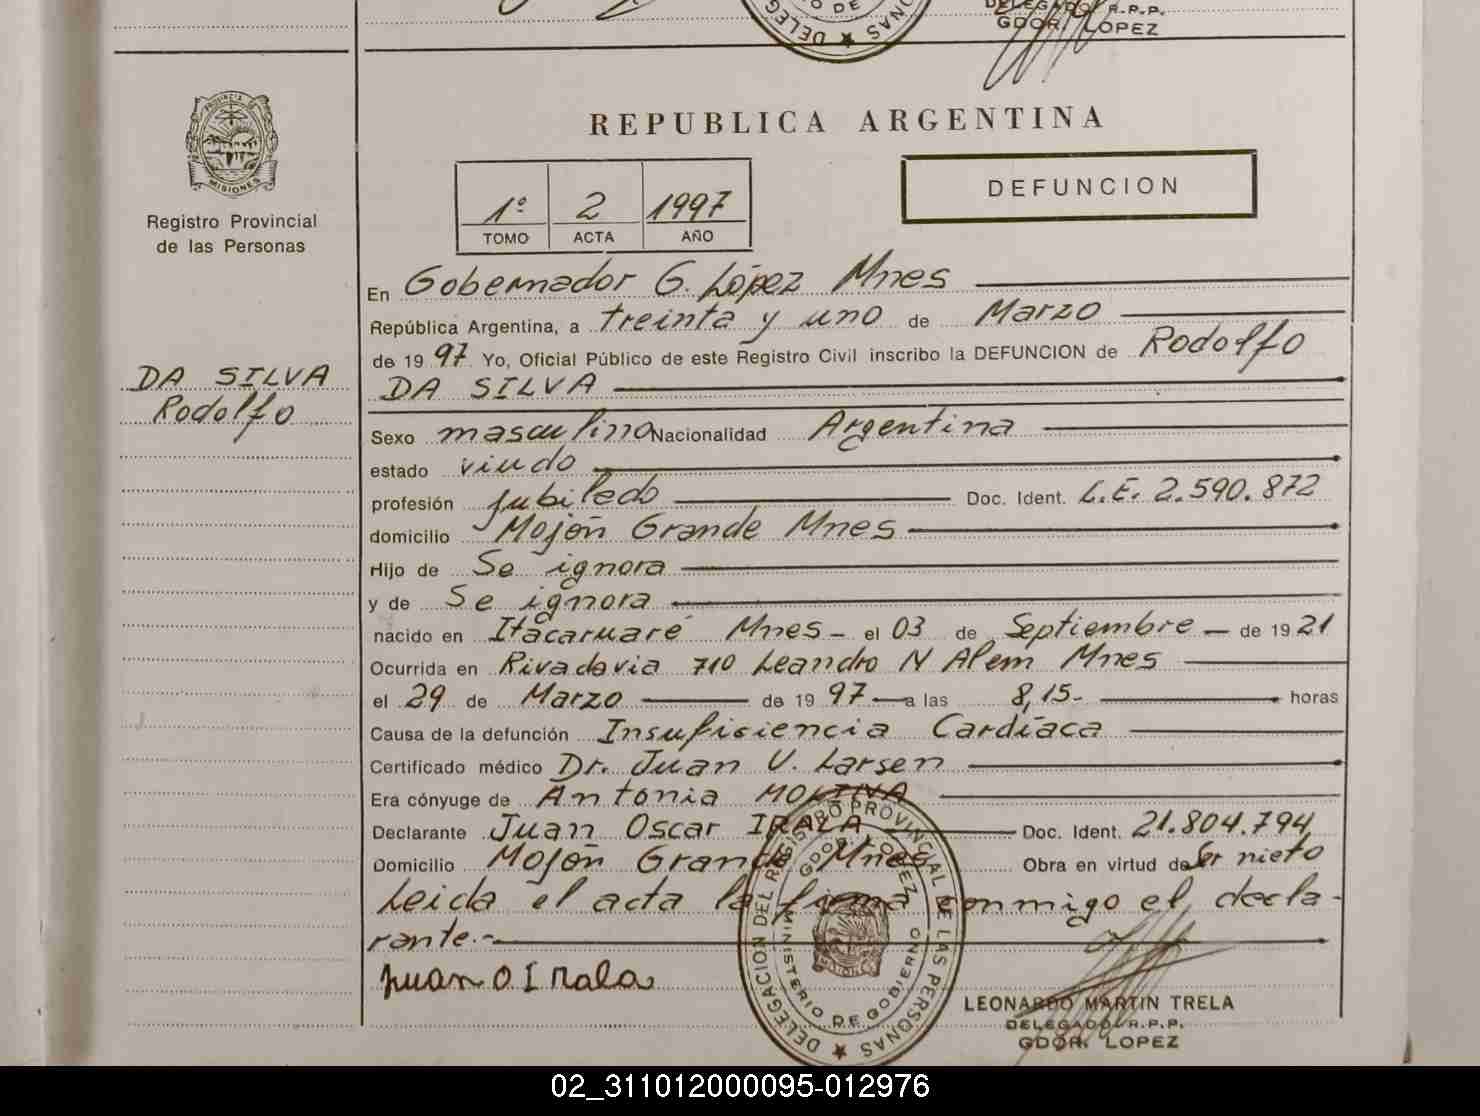 DELEGADO R.P.P.
GDOR. LOPEZ
REPUBLICA ARGENTINA
PROVINCIA DE
MISIONES
Registro Provincial
de las Personas
1º 2 1997
TOMO ACTA AÑO
DEFUNCION
En Gobernador G. López Mnes
República Argentina, a treinta y uno de Marzo
de 1997 Yo, Oficial Público de este Registro Civil inscribo la DEFUNCION de Rodolfo
DA SILVA
DA SILVA
Rodolfo
Sexo masculino Nacionalidad Argentina
estado viudo
profesión jubilado Doc. Ident. L.E. 2.590.872
domicilio Mojón Grande Mnes
Hijo de Se ignora
y de Se ignora
nacido en Itacaruaré Mnes - el 03 de Septiembre - de 1921
Ocurrida en Rivadavia 710 Leandro N Alem Mnes
el 29 de Marzo de 1997 a las 8,15- horas
Causa de la defunción Insuficiencia Cardíaca
Certificado médico Dr. Juan V. Larsen
Era cónyuge de Antonia MOLINA
Declarante Juan Oscar IRALA Doc. Ident. 21.804.794
Domicilio Mojón Grande Mnes Obra en virtud de Ser nieto
Leida el acta la firma conmigo el decla-
rante.-
Juan O Irala
DELEGACION DEL REGISTRO PROVINCIAL DE LAS PERSONAS
GDOR. LOPEZ
MINISTERIO DE GOBIERNO
LEONARDO MARTIN TRELA
DELEGADO R.P.P.
GDOR. LOPEZ
02_311012000095-012976